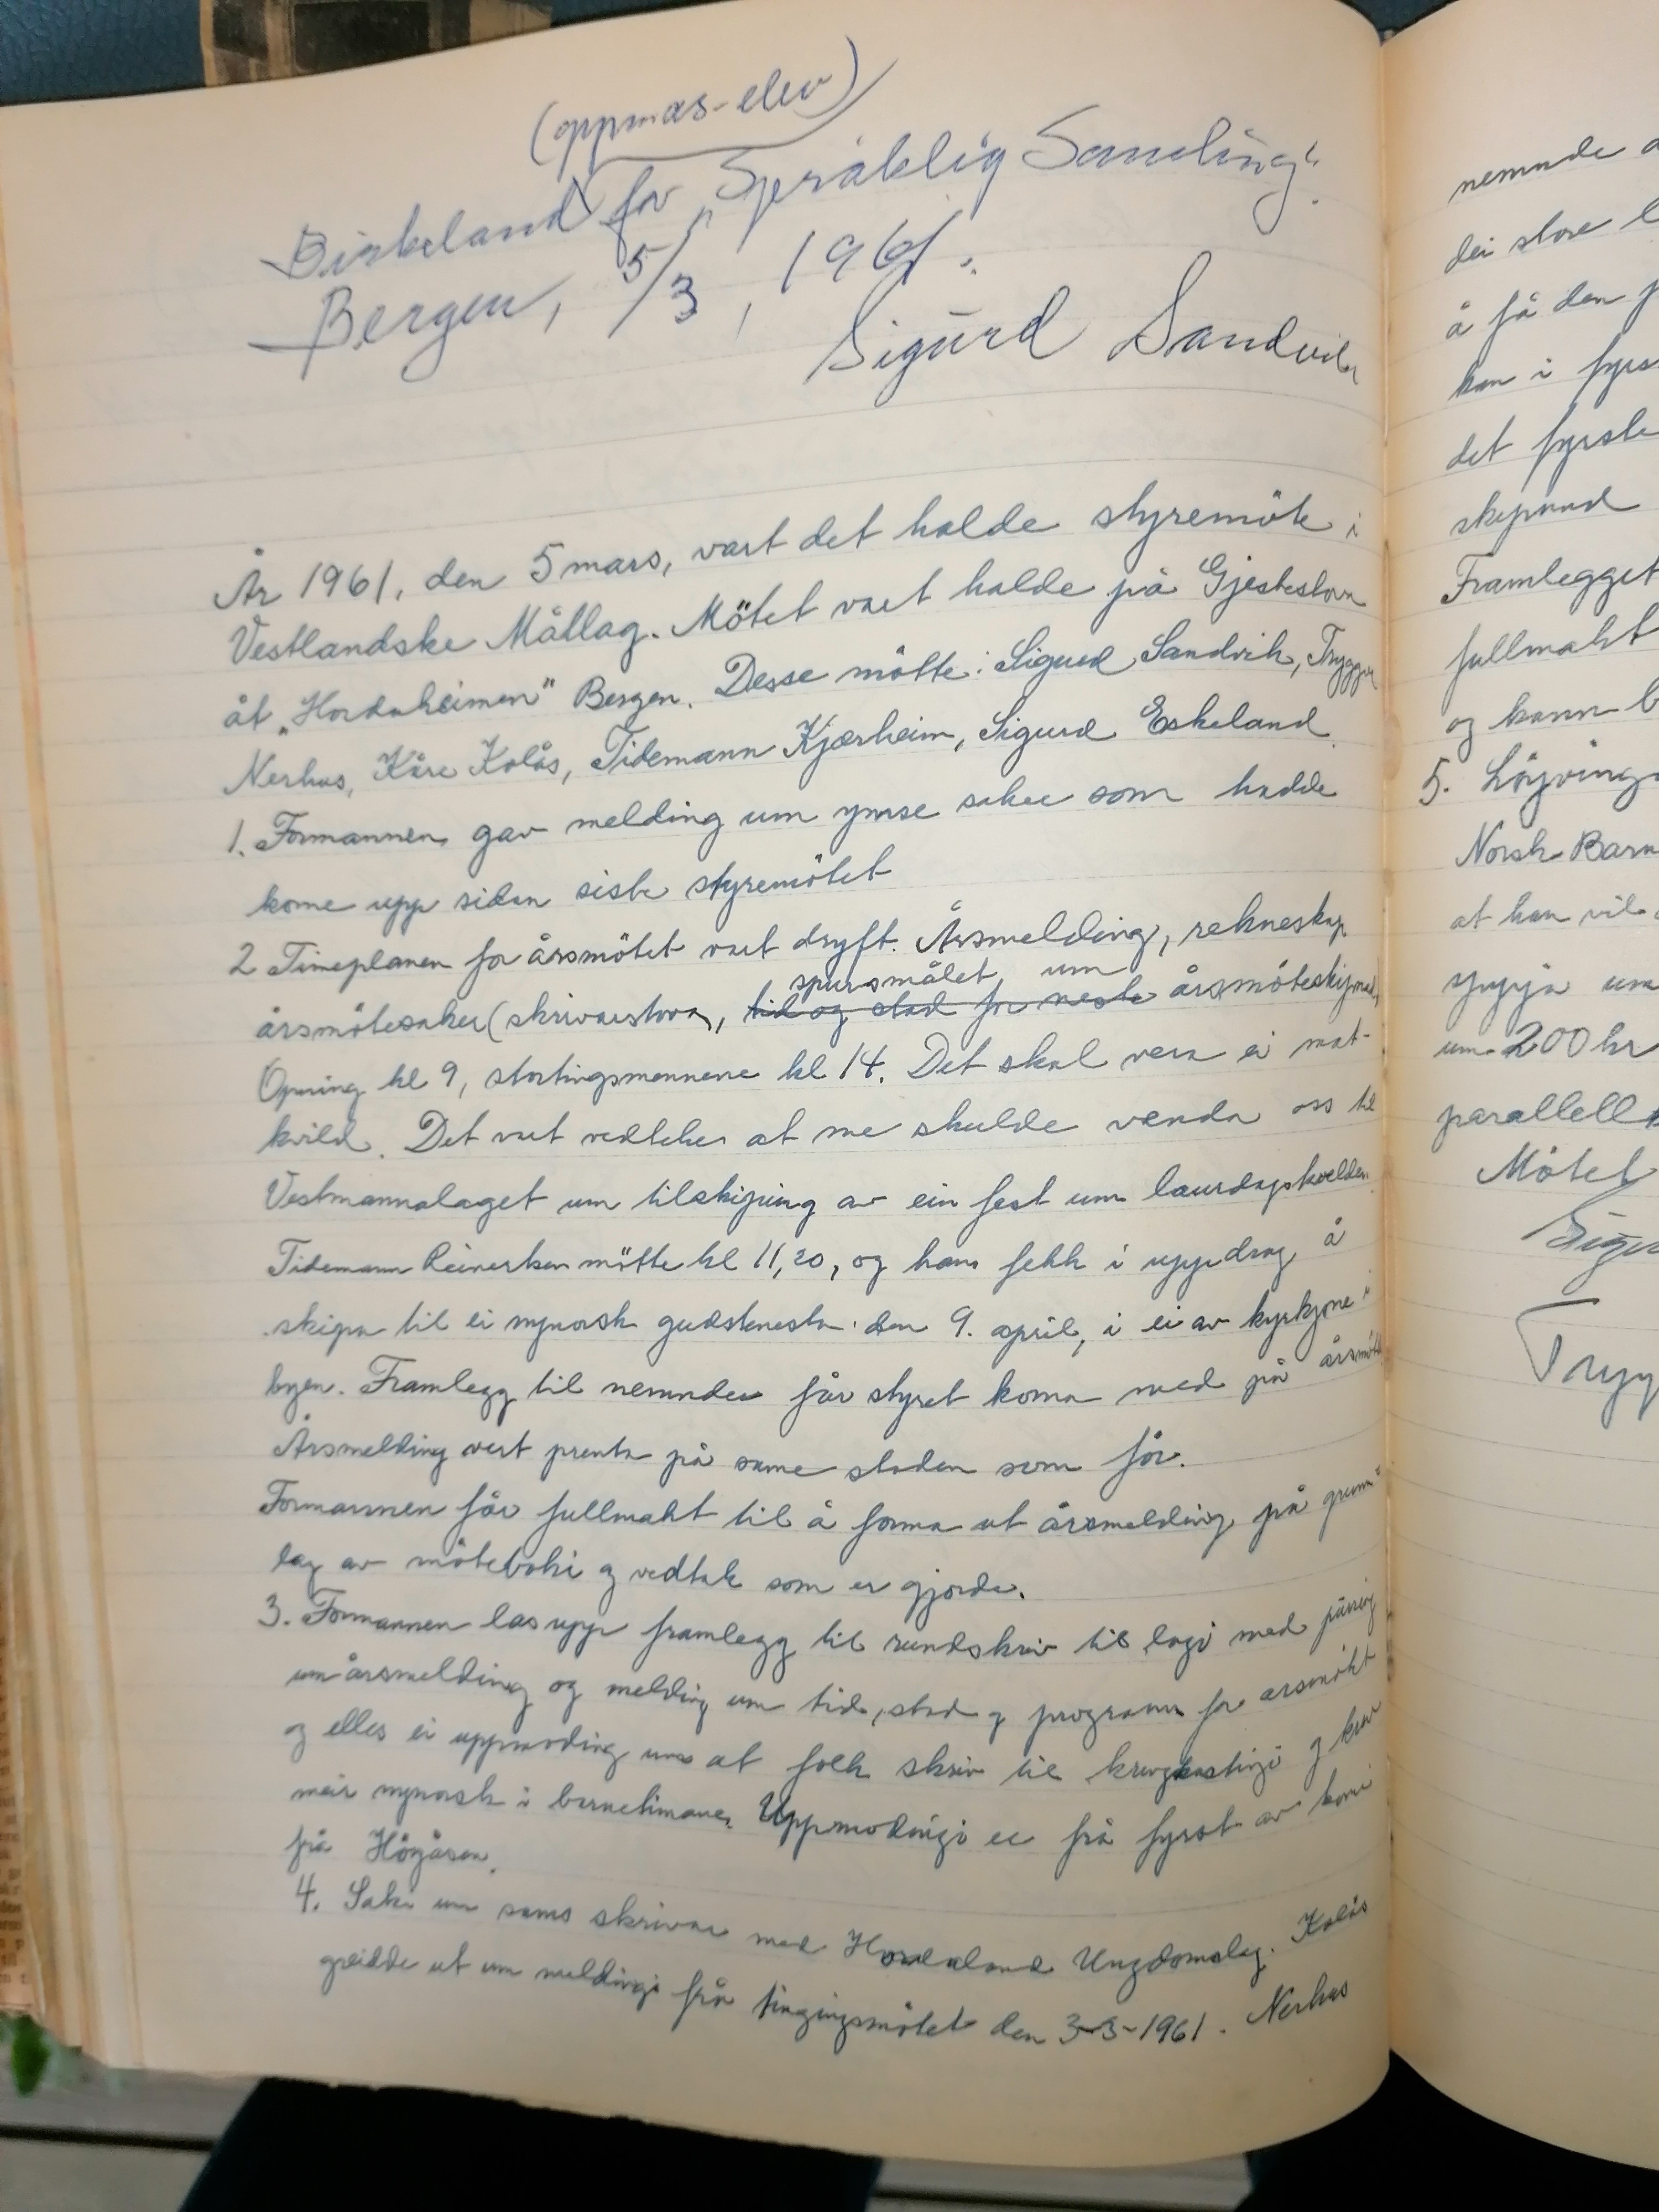 (oppmas-elev)
Birkeland for "Språklig Samling".
Bergen, 5/3, 1961.
Sigurd Sandvik
År 1961, den 5 mars, vart det halde styremöte i
Vestlandske Mållag. Mötet vart halde på Gjestestova
åt "Hordaheimen" Bergen. Desse mötte: Sigurd Sandvik, Trygve
Nerhus, Kåre Kolås, Tidemann Kjærheim, Sigurd Eskeland.
1. Formannen gav melding um ymse saker som hadde
kome upp sidan siste styremötet
2 Timeplanen for årsmötet vart dryft. Årsmelding, rekneskap
spursmålet um
årsmötesaker (skrivarstova, tid og stad for neste årsmöteskipnad,
Opning kl 9, stortingsmennene kl 14. Det skal vera ei mat-
kvild. Det vart vedteke at me skulde venda oss til
Vestmannalaget um tilskiping av ein fest um laurdagskvelden.
Tidemann mötte kl 11,20, og han fekk i uppdrag å
skipa til ei nynorsk gudstenesta den 9. april, i ei av kyrkjone i
byen. Framlegg til nemnder får styret koma med på årsmötet
Årsmelding vert prenta på same staden som för.
Formannen får fullmakt til å forma ut årsmelding på grunn-
lag av möteboki og vedtak som er gjorde.
3. Formannen las upp framlegg til rundskriv til lagi med påminning
um årsmelding og melding um tid, stad og program for årsmötet
og elles ei uppmoding um at folk skriv til kringkastingi og krev
meir nynorsk i barnetimane. Uppmodingi er frå fyrst av komi
frå Högåsen.
4. Saki um sams skrivar med Hordaland Ungdomslag. Kolås
greidde ut um meldingi frå tingingsmötet den 3-3-1961. Nerhus
nemnde
dei store
å få den
kan i fyrs
det fyrste
skipnad
Framlegget
fullmakt
og kann
5. Löyvinga
Norsk Barn
at han vil
um
um 200 kr
parallell
Mötet
Sigu
Tryg